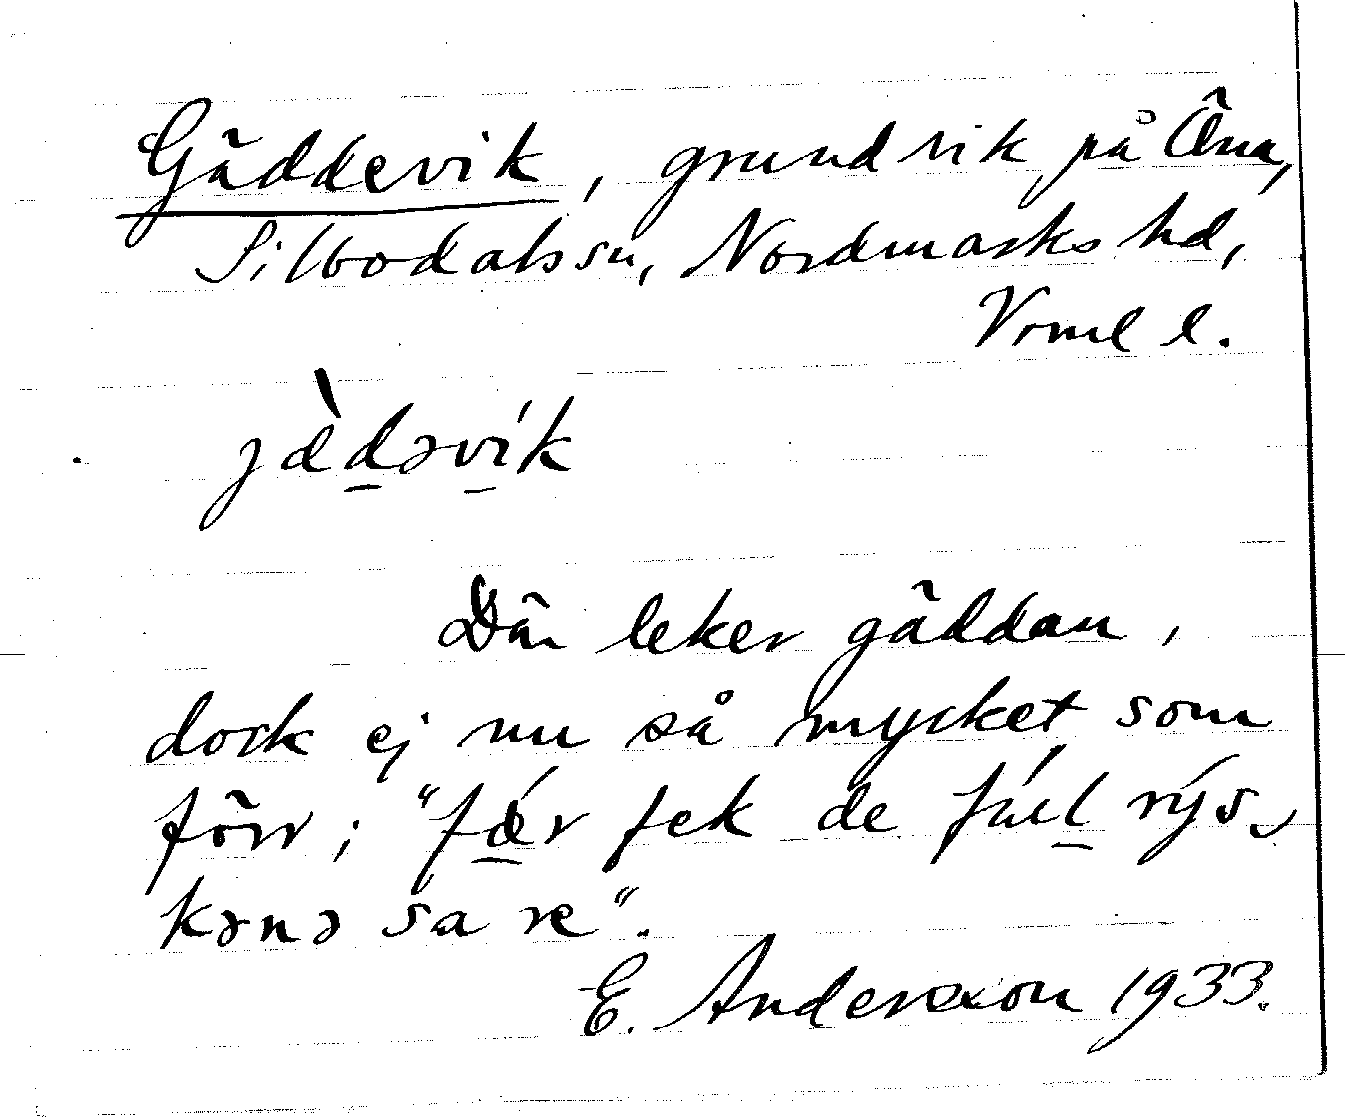 Gäddevik, grund vik på Änn,
Silbodalssn, Nordmarks hd,
Vrml l.
jàd̲əv̲ík
Där leker gäddan,
dock ej nu så mycket som
förr; "fǽ̲r fek de fúl̲ rýs‿
kənə sa re".
E. Andersson 1933.